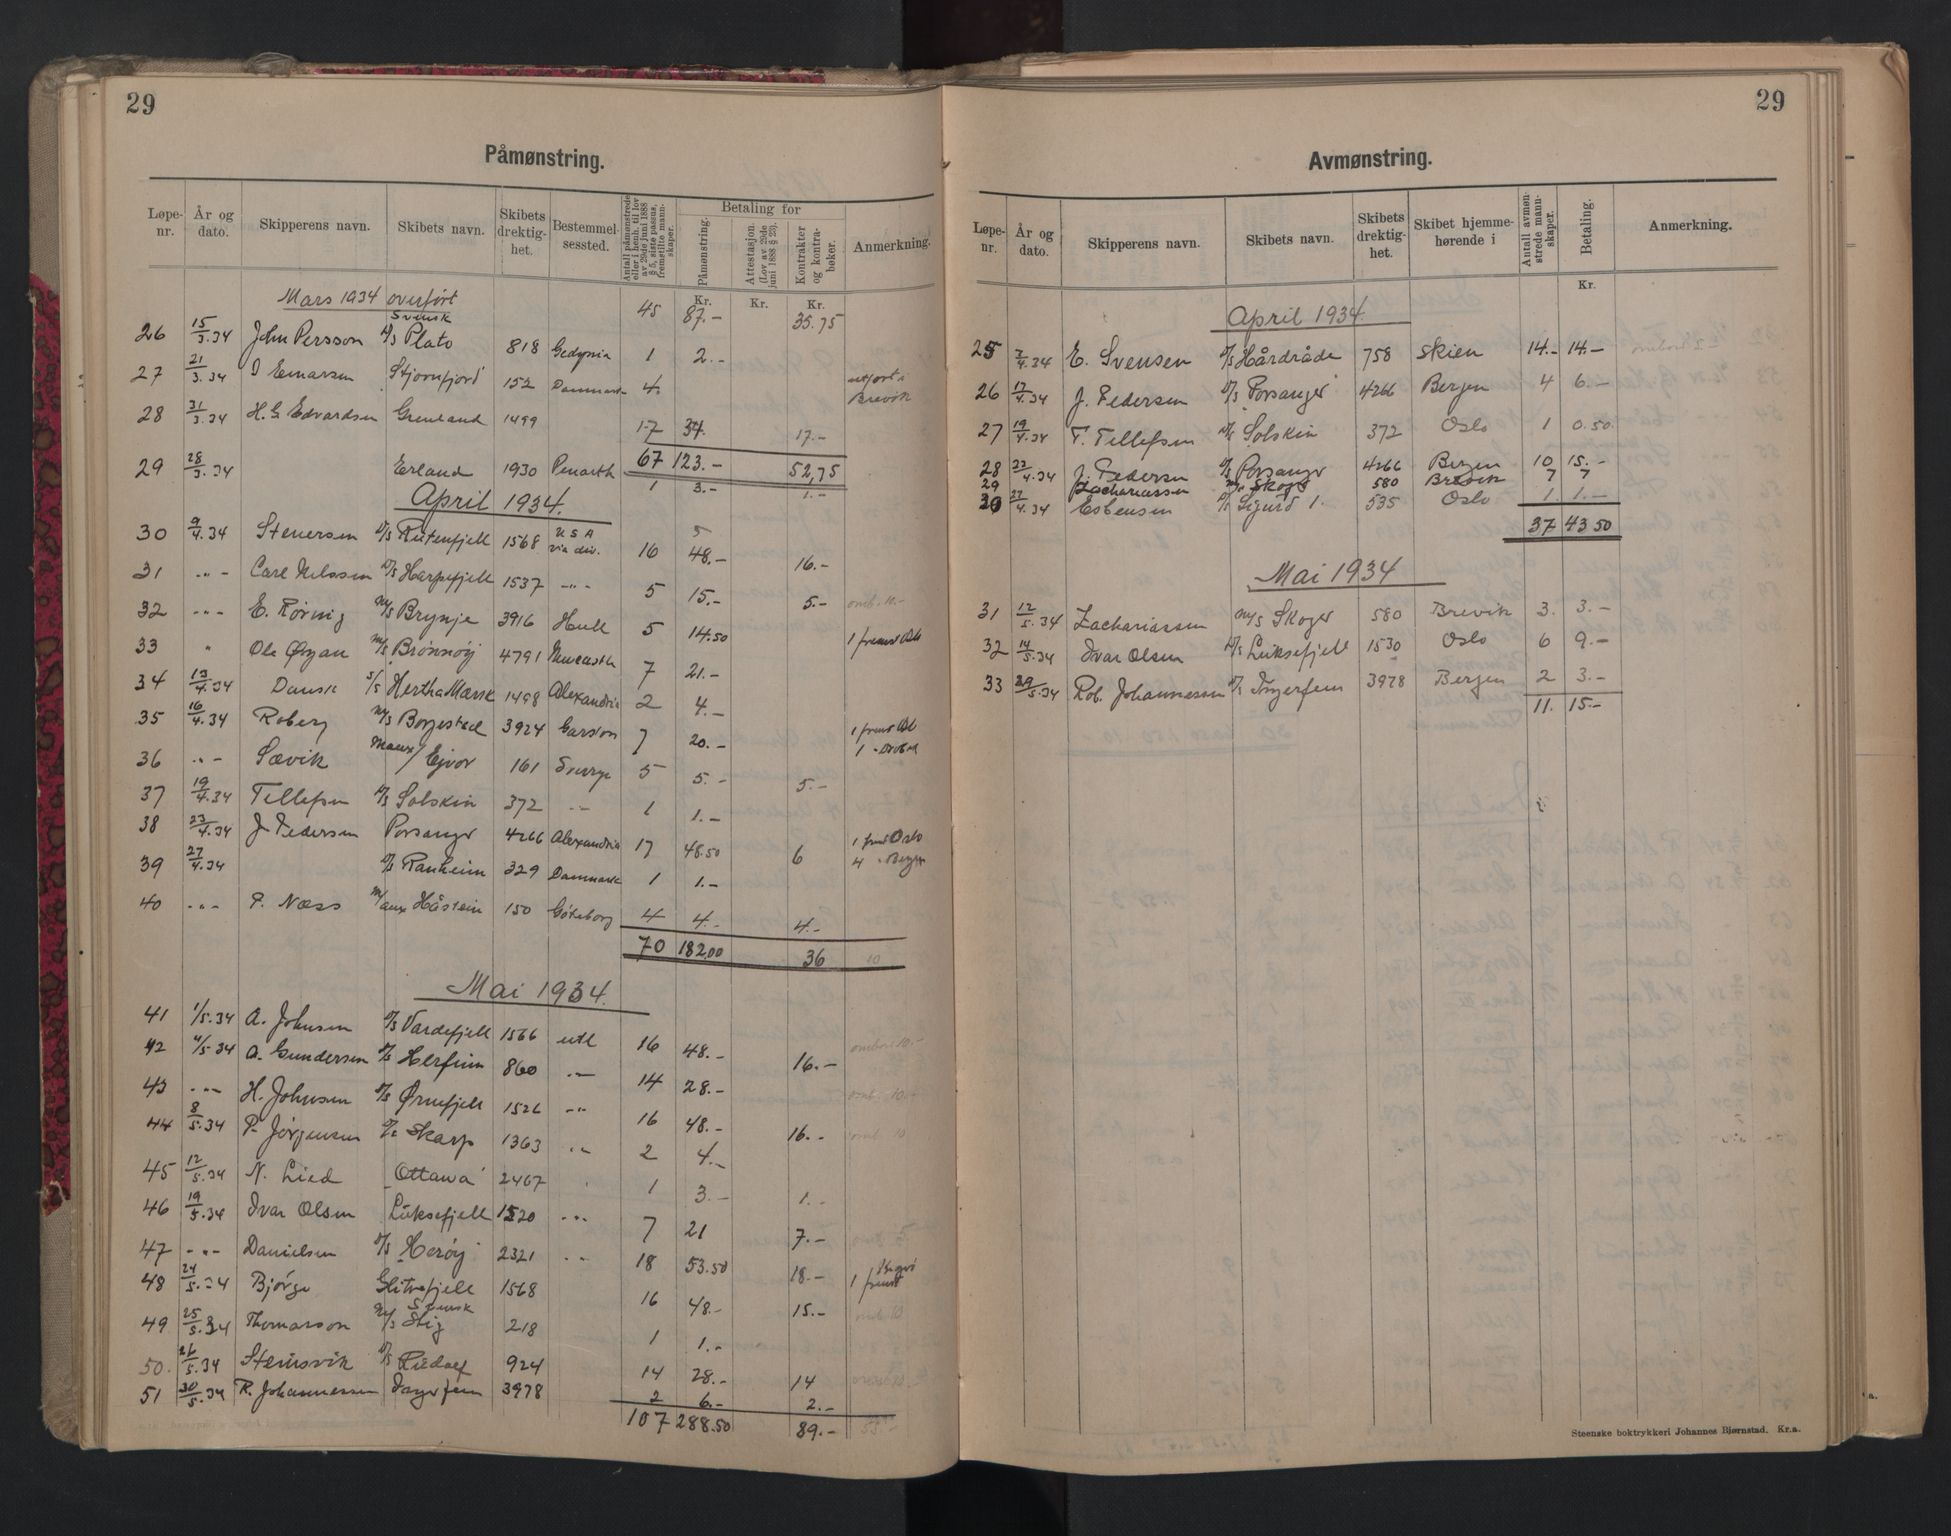 29
Påmønstring.
Løpe-nr. | År og dato. | Skipperens navn. | Skibets navn. | Skibets drektig-het. | Bestemmel-sessted. | Antall påmønstrede eller i henh. til lov av 29de juni 1888 § 5, siste passus, fremstilte mann-skaper. | Betaling for | Påmønstring. | Attestasjon. (Lov av 29de juni 1888 § 23). | Kontrakter og kontra-bøker. | Anmerkning.
Kr. Kr. Kr.
Mars 1934 overført 45 87.- 35.75
Svensk
26 15/3.34 John Persson D/S Plato 818 Gedynia 1 2.-
27 21/3.34 Einarsen Stjornfjord 152 Danmark 4 utført i Brevik
28 31/3.34 H. G. Edvardsen Grenland 1499 17 34. 17.-
67 123.- 52,75
29 28/3.34 Erland 1930 Penarth 1 3.- 1.-
April 1934.
5
30 9/4.34 Stenersen D/S Rutenfjell 1568 U S A via div. 16 48.- 16.-
31 -"- Carl Nilssen D/S Harpefjell 1537 -"- 5 15.- 5.- omb. 10.-
32 -"- E. Rørvig M/S Brynje 3916 Hull 5 14.50 1 fremst Oslo
33 " Ole Ørjan M/S Brønnøy 4791 Newcastle 7 21.-
34 13/4.34 Dansk S/S Hertha Mærsk 1498 Alexandria 2 4.-
35 16/4.34 Roberg M/S Borgestad 3924 Garston 7 20.- 1 fremst Osl
1 "
36 -"- Sævik M/aux Ejvor 161 Sverge 5 5.- 5.-
37 19/4.34 Tellefsen D/S Solskin 372 -"- 1 1.-
38 23/4.34 J. Pedersen Porsanger 4266 Alexandria 17 48.50 6 1 fremst Oslo
4 " Bergen
39 27/4.34 D/S Ranheim 329 Danmark 1 1.-
40 -"- P. Næss M/aux Håstein 150 Göteborg 4 4.- 4.-
70 182,00 36 10
Mai 1934.
41 1/5.34 A. Johnsen D/S Vardefjell 1566 utl 16 48.- 16.- ombord 10.-
42 4/5 34 A. Gundersen D/S Herfinn 860 -"- 14 28.-
43 -"- H. Johnsen D/S Ørnefjell 1526 -"- 16 48.- 16.- omb. 10.-
44 8/5.34 P. Jörgensen D/S Skarp 1363 -"- 2 4.- omb 10
45 12/5.34 N. Lied Ottawa 2467 1 3.- 1.-
46 19/5.34 Ivar Olsen Luksefjell 1520 -"- 7 21 7.-
47 -"- Danielsen D/S Herøy 2321 -"- 18 53.50 18.- 1 fremst
48 24/5.34 Bjørge Glitrefjell 1568 16 48.- 15.- omb 10
Svensk
49 25/5.34 Thomasson M/S Stig 218 1 1.-
50. 26/5.34 Steinsvik D/S Rudolf 924 14 28.- 14
51 30/5.34 R. Johannessen Ingerfem 3978 2 6.- 2.-
107 288.50 89.-
29
Avmønstring.
Løpe-nr. | År og dato. | Skipperens navn. | Skibets navn. | Skibets drektig-het. | Skibet hjemme-hørende i | Antall avmøn-strede mann-skaper. | Betaling. | Anmerkning.
Kr.
April 1934.
25 3/4.34 E. Svensen D/S Hårdråde 758 Skien 14.- 14.-
26 17/4.34 J. Pedersen D/S Porsanger 4266 Bergen 4 6.-
27 19/4.34 T. Tellefsen D/S Solskin 372 Oslo 1 0.50.
28 22/4.34 J. Pedersen D/S Porsanger 4266 Bergen 10 15.-
29 Zachariassen M/S Skoger 580 Brevik 7 7
30 27/4.34 Esbensen D/S Sigurd 1. 535 Oslo 1. 1.-
37 43 50
Mai 1934
31 12/5.34 Zachariassen M/S Skoger 580 Brevik 3. 3.-
32 14/5.34 Ivar Olsen D/S Luksefjell 1530 Oslo 6 9.-
33 29/5.34 Rob. Johannessen D/S Ingerfem 3978 Bergen 2 3.-
11. 15.-
Steenske boktrykkeri Johannes Bjørnstad. Kr.a.